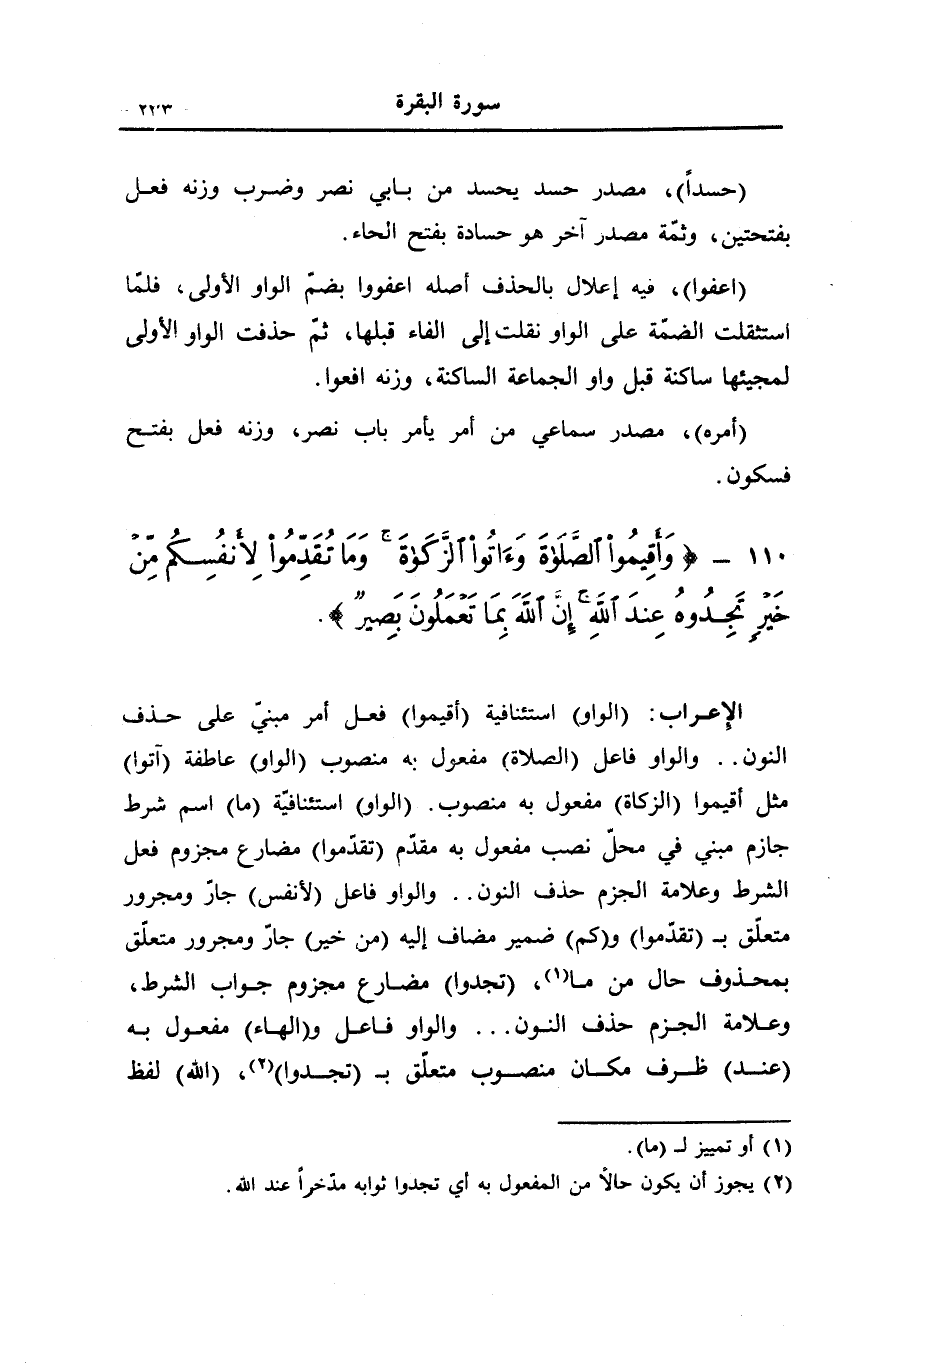 سورة البقرة ٢٢٣
(حسداً)، مصدر حسد يحسد من بـابي نصر وضـرب وزنه فعـل
بفتحتين، وثمّة مصدر آخر هو حسادة بفتح الحاء.
(اعفوا)، فيه إعلال بالحذف أصله اعفووا بضمّ الواو الأولى، فلمّا
استثقلت الضمّة على الواو نقلت إلى الفاء قبلها، ثمّ حذفت الواو الأولى
لمجيئها ساكنة قبل واو الجماعة الساكنة، وزنه افعوا.
(أمره)، مصدر سماعي من أمر يأمر باب نصر، وزنه فعل بفتـح
فسكون.
١١٠ – ﴿ وَأَقِيمُواْ ٱلصَّلَوٰةَ وَءَاتُواْ ٱلزَّكَوٰةَ ۚ وَمَا تُقَدِّمُواْ لِأَنفُسِكُم مِّنْ
خَيْرٍ تَجِدُوهُ عِندَ ٱللَّهِ ۗ إِنَّ ٱللَّهَ بِمَا تَعْمَلُونَ بَصِيرٌ ﴾.
الإعـراب: (الواو) استئنافية (أقيموا) فعـل أمر مبنيّ على حـذف
النون.. والواو فاعل (الصلاة) مفعول به منصوب (الواو) عاطفة (آتوا)
مثل أقيموا (الزكاة) مفعول به منصوب. (الواو) استئنافيّة (ما) اسم شرط
جازم مبني في محلّ نصب مفعول به مقدّم (تقدّموا) مضارع مجزوم فعل
الشرط وعلامة الجزم حذف النون.. والواو فاعل (لأنفس) جارّ ومجرور
متعلّق بـ (تقدّموا) و(كم) ضمير مضاف إليه (من خير) جارّ ومجرور متعلّق
بمحـذوف حال من مـا(١)، (تجدوا) مضـارع مجزوم جـواب الشرط،
وعـلامة الجـزم حذف النـون... والواو فـاعـل و(الهـاء) مفعـول بـه
(عنـد) ظـرف مكـان منصـوب متعلّق بـ (تجـدوا)(٢)، (الله) لفظ
(١) أو تمييز لـ (ما).
(٢) يجوز أن يكون حالاً من المفعول به أي تجدوا ثوابه مدّخراً عند الله.